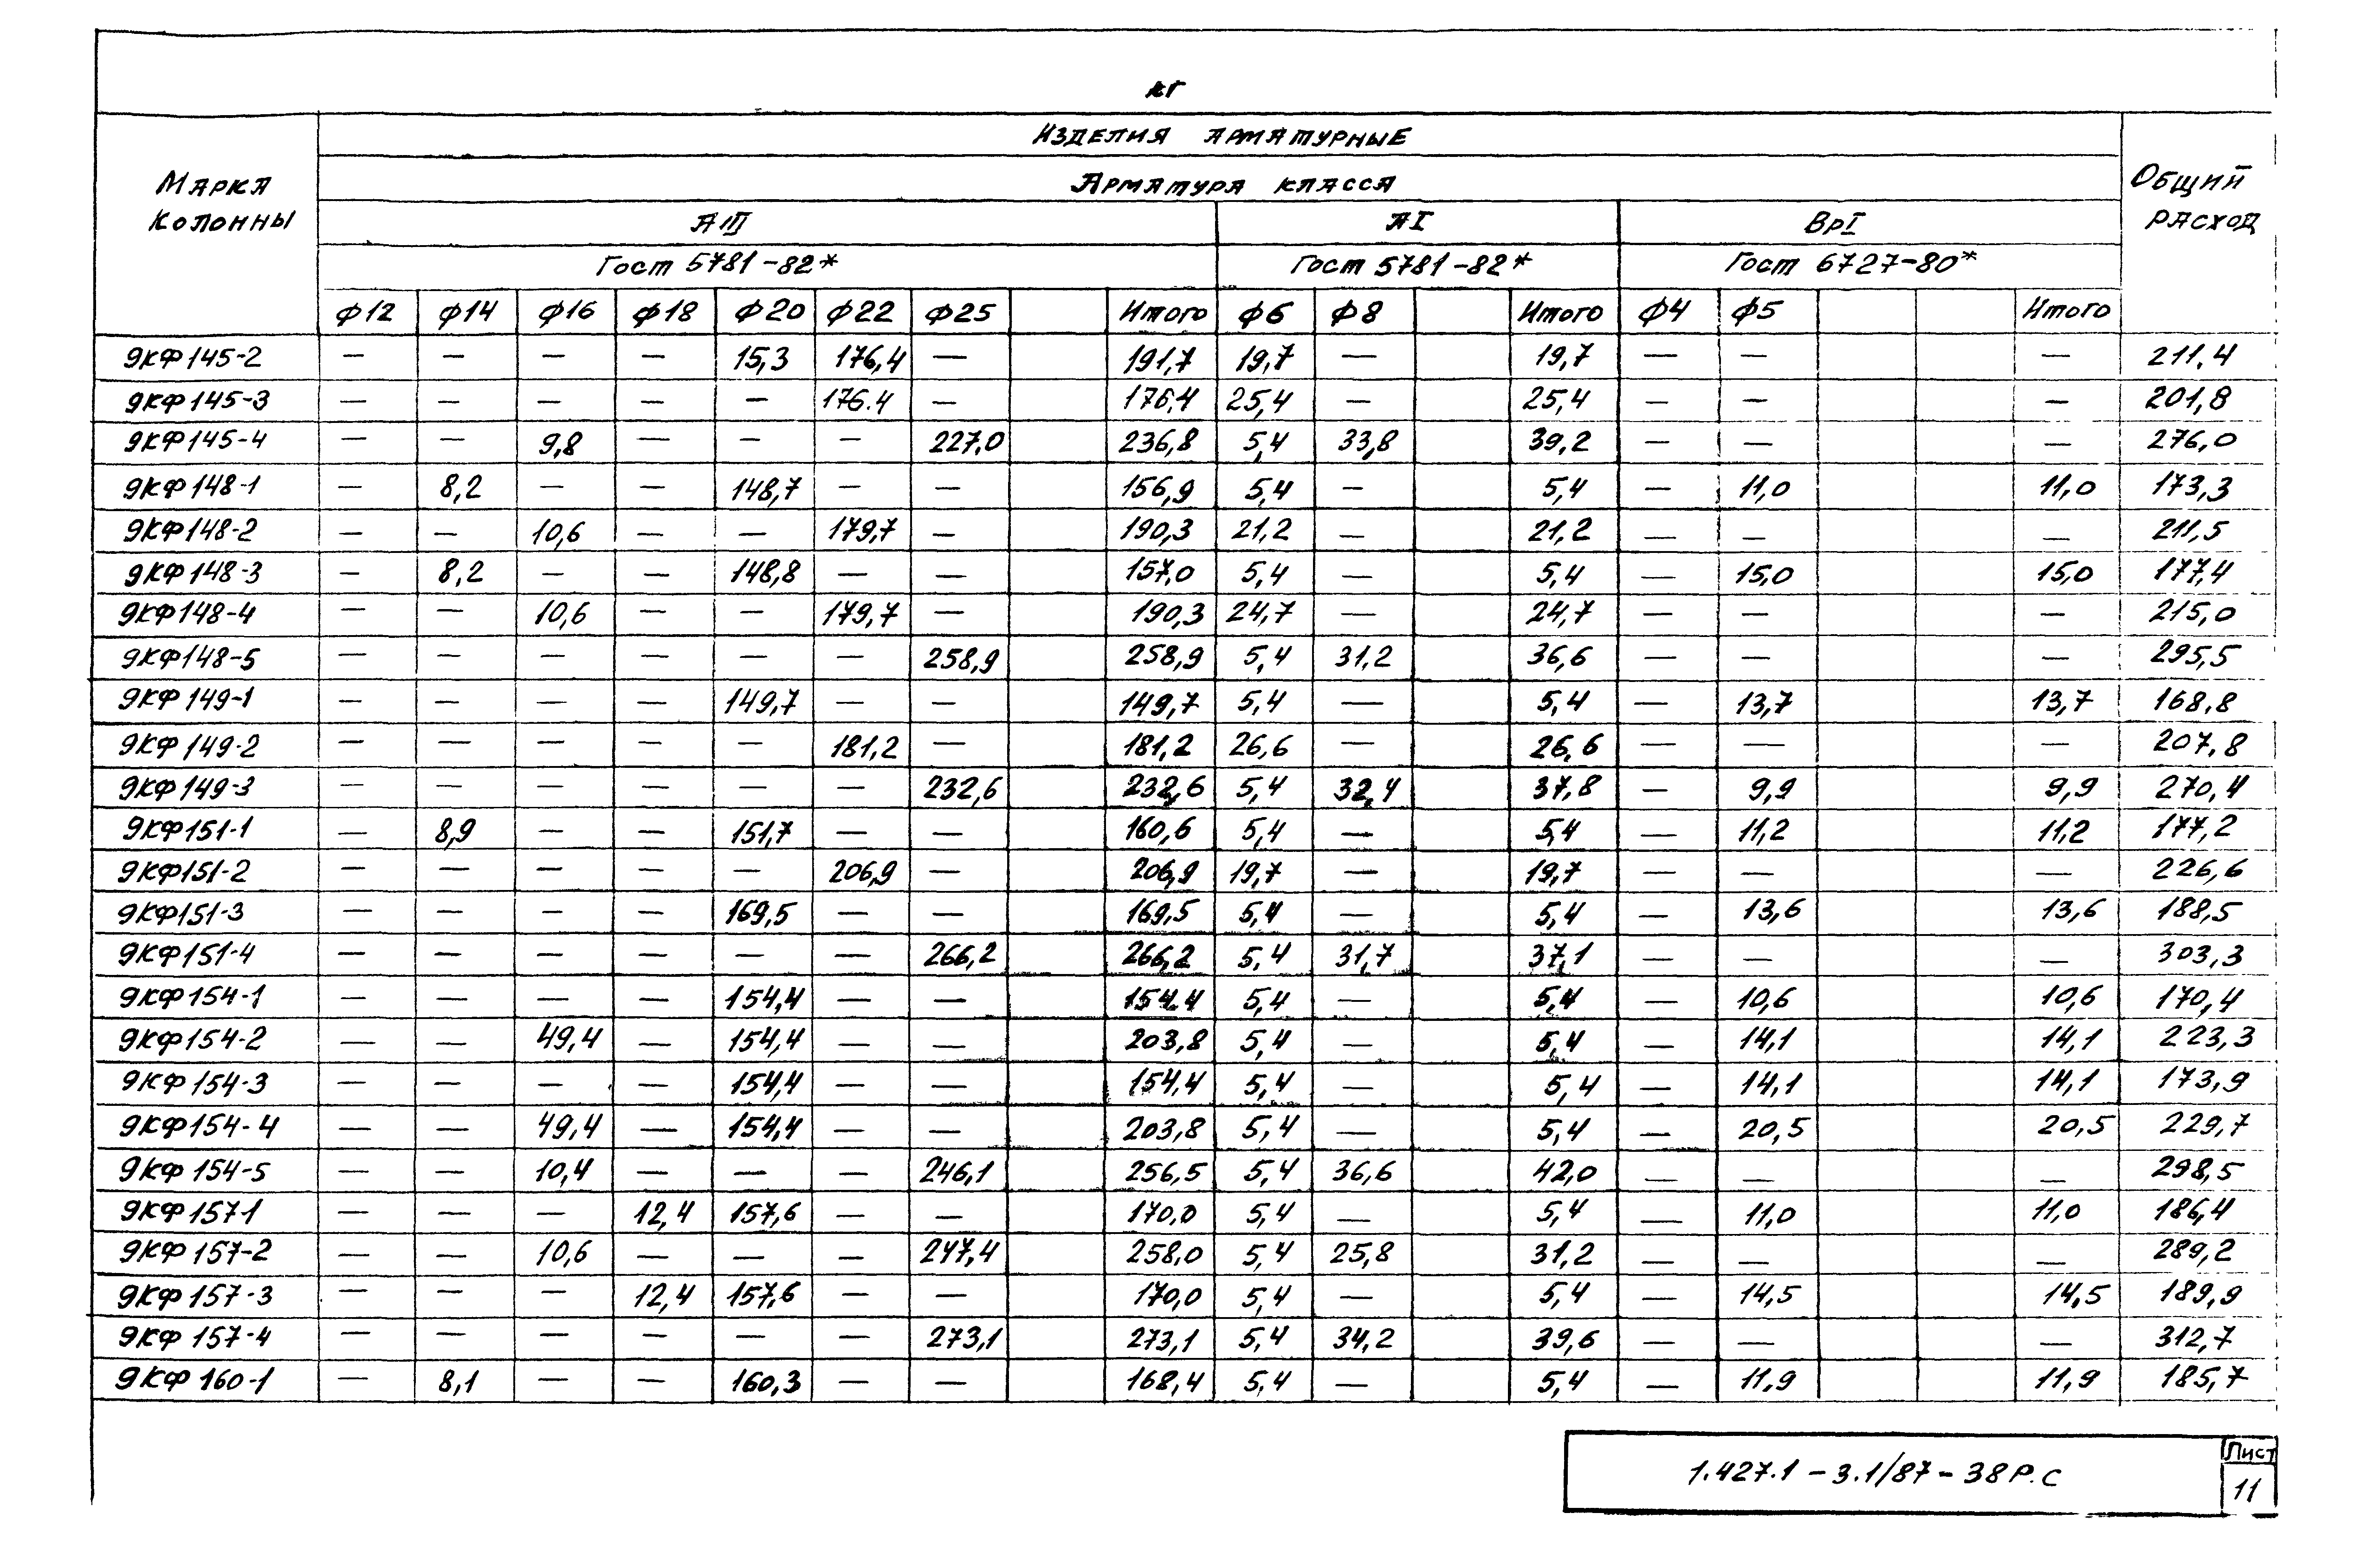 кг
Изделия арматурные
Марка колонны
Арматура класса
Общий расход
АIII АI ВрI
Гост 5781-82* Гост 5781-82* Гост 6727-80*
Ф12 Ф14 Ф16 Ф18 Ф20 Ф22 Ф25 Итого Ф6 Ф8 Итого Ф4 Ф5 Итого
9КФ145-2 — — — — 15,3 176,4 — 191,7 19,7 — 19,7 — — — 211,4
9КФ145-3 — — — — — 176.4 — 176,4 25,4 — 25,4 — — — 201,8
9КФ145-4 — — 9,8 — — — 227,0 236,8 5,4 33,8 39,2 — — — 276,0
9КФ148-1 — 8,2 — — 148,7 — — 156,9 5,4 — 5,4 — 11,0 11,0 173,3
9КФ148-2 — — 10,6 — — 179,7 — 190,3 21,2 — 21,2 — — — 211,5
9КФ148-3 — 8,2 — — 148,8 — — 157,0 5,4 — 5,4 — 15,0 15,0 177,4
9КФ148-4 — — 10,6 — — 179,7 — 190,3 24,7 — 24,7 — — — 215,0
9КФ148-5 — — — — — — 258,9 258,9 5,4 31,2 36,6 — — — 295,5
9КФ149-1 — — — — 149,7 — — 149,7 5,4 — 5,4 — 13,7 13,7 168,8
9КФ149-2 — — — — — 181,2 — 181,2 26,6 — 26,6 — — — 207,8
9КФ149-3 — — — — — — 232,6 232,6 5,4 32,4 37,8 — 9,9 9,9 270,4
9КФ151-1 — 8,9 — — 151,7 — — 160,6 5,4 — 5,4 — 11,2 11,2 177,2
9КФ151-2 — — — — — 206,9 — 206,9 19,7 — 19,7 — — — 226,6
9КФ151-3 — — — — 169,5 — — 169,5 5,4 — 5,4 — 13,6 13,6 188,5
9КФ151-4 — — — — — — 266,2 266,2 5,4 31,7 37,1 — — — 303,3
9КФ154-1 — — — — 154,4 — — 154,4 5,4 — 5,4 — 10,6 10,6 170,4
9КФ154-2 — — 49,4 — 154,4 — — 203,8 5,4 — 5,4 — 14,1 14,1 223,3
9КФ154-3 — — — — 154,4 — — 154,4 5,4 — 5,4 — 14,1 14,1 173,9
9КФ154-4 — — 49,4 — 154,4 — — 203,8 5,4 — 5,4 — 20,5 20,5 229,7
9КФ154-5 — — 10,4 — — — 246,1 256,5 5,4 36,6 42,0 — — — 298,5
9КФ157-1 — — — 12,4 157,6 — — 170,0 5,4 — 5,4 — 11,0 11,0 186,4
9КФ157-2 — — 10,6 — — — 247,4 258,0 5,4 25,8 31,2 — — — 289,2
9КФ157-3 — — — 12,4 157,6 — — 170,0 5,4 — 5,4 — 14,5 14,5 189,9
9КФ157-4 — — — — — — 273,1 273,1 5,4 34,2 39,6 — — — 312,7
9КФ160-1 — 8,1 — — 160,3 — — 168,4 5,4 — 5,4 — 11,9 11,9 185,7
1.427.1-3.1/87-38Р.С
Лист
11